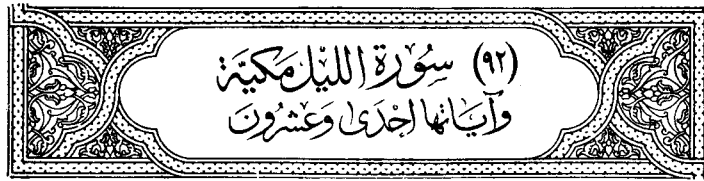 (٩٢) سُورَة الليْل مَكيَّة
وَآيَاتهَا اِحْدَى وَعشرُونَ